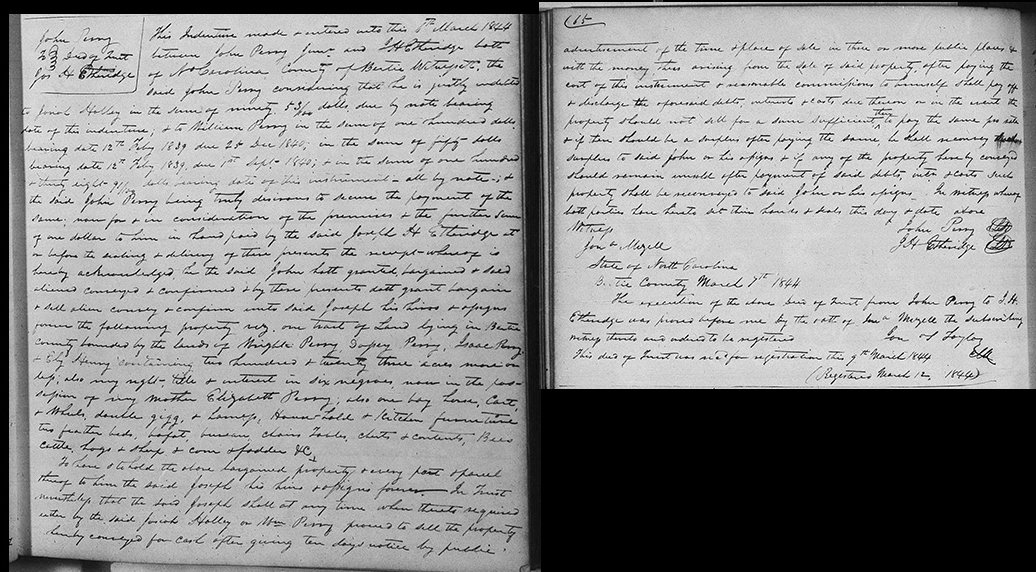 John Perry
To Deed of Trust
Jos H Etheridge
This Indenture made & entered into this 8th March 1844
between John Perry Junr and J H Etheridge both
of No Carolina County of Bertie Witnesseth, the
said John Perry considering that he is justly indebted
to Josiah Holley in the sum of ninety 53/100 dollars due by note bearing
date of this indenture, & to William Perry in the sum of one hundred dolls.
bearing date 12th Feby 1839 due 25 Dec 1840; in the sum of fifty dolls
bearing date 12th Feby 1839. due 1st Sept 1840; & in the sum of one hundred
& thirty eight dolls bearing date of this instrument - all by note -; &
the said John Perry being truly desirous to secure the payment of the
same. now for & in consideration of the premises & the further sum
of one dollar to him in hand paid by the said Joseph H Etheridge at
or before the sealing & delivery of these presents the receipt whereof is
hereby acknowledged he the said John hath granted bargained & sold
aliened conveyed & confirmed & by these presents doth grant bargain
& sell alien convey & confirm unto said Joseph his heirs & assigns
forever the following property viz. one tract of Land lying in Bertie
County bounded by the lands of Wright Perry, Perry, Isaac Perry
& Henry containing two hundred & twenty three acres more or
less; also my right, title & interest in six negroes, now in the pos-
session of my mother Elizabeth Perry; also one bay horse, Cart,
& Wheels, double gigg, & harness, House-hold & Kitchen furniture
two feather beds, bofat, bureau, chairs Tables, chests & contents, Bees
Cattle, hogs & sheep & corn & fodder &C,
To have & to hold the above bargained property & every part & parcel
thereof to him the said Joseph his heirs & assigns forever - In Trust
nevertheless, that the said Joseph shall at any time when thereto required
either by the said Josiah Holley or Wm Perry proceed to sell the property
hereby conveyed for cash after giving ten days notice by public
615
advertisement of the time & place of sale in three or more public places &
with the money thus arising from the sale of said property, after paying the
cost of this instrument & reasonable commissions to himself shall pay off
& discharge the aforesaid debts, interests & costs due thereon or in the event the
property should not sell for a sum sufficient then to pay the same pro rata
& if there should be a surplus after paying the same, he shall reconvey
surplus to said John or his assigns & if any of the property hereby conveyed
should remain unsold after payment of said debts, intt & costs such
property shall be reconveyed to said John or his assigns. In witness whereof
both parties have hereto set their hands & seals this day & date above
Witness John Perry Seal
Jona Mizell J H Etheridge Seal
State of North Carolina
Bertie County March 9th 1844
The execution of the above Deed of Trust from John Perry to J. H.
Etheridge was proved before me by the oath of Jona Mizell the subscribing
witness thereto and ordered to be registered Jon S Taylor
This deed of Trust was recd for registration the 9th March 1844 Clk
(Registered March 12, 1844)